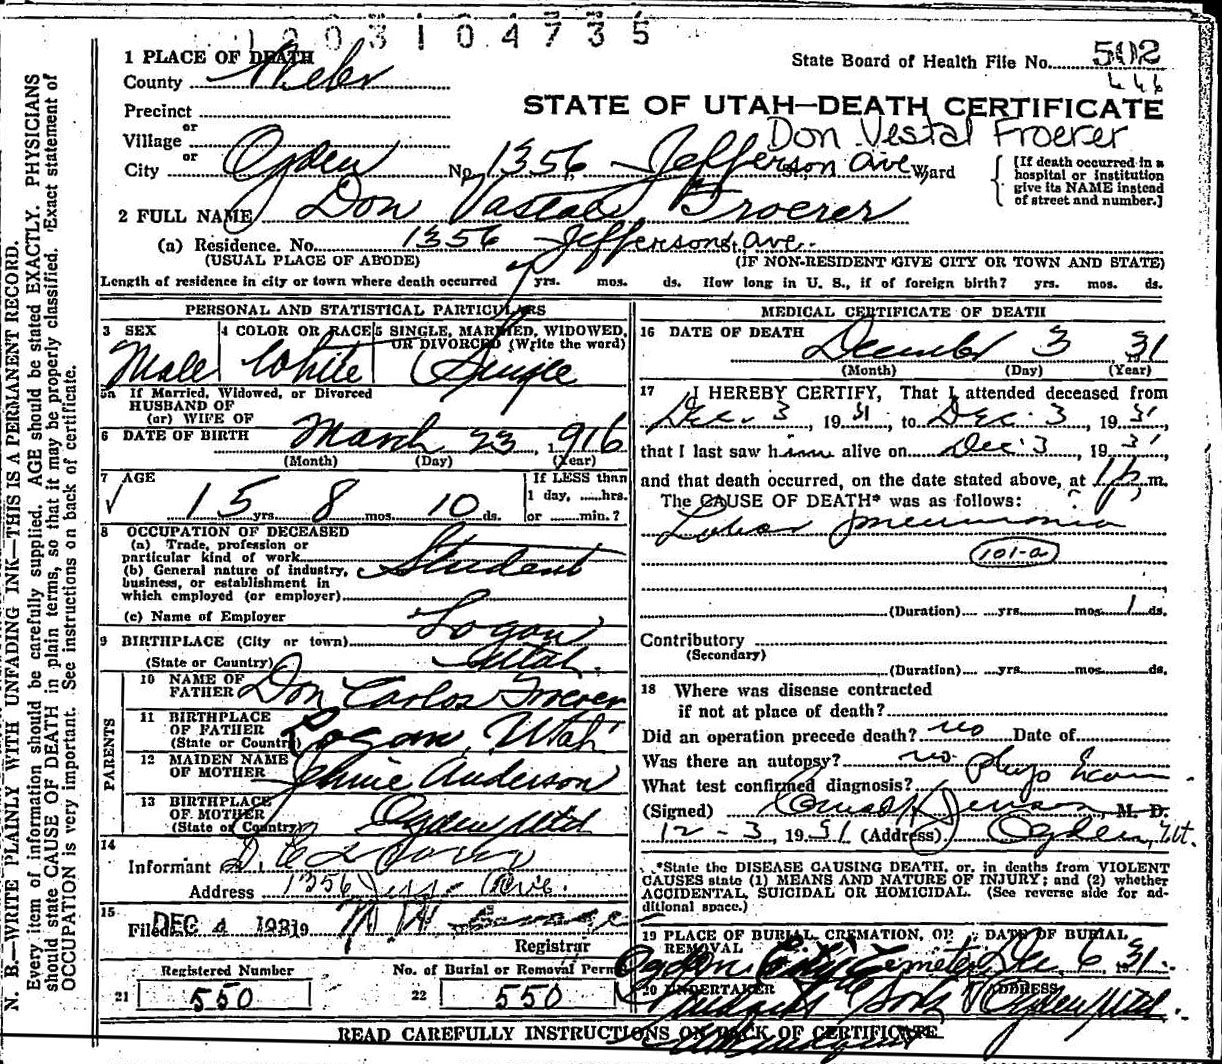 1203104735
1 PLACE OF DEATH
County Weber
State Board of Health File No. 502
446
Precinct
STATE OF UTAH—DEATH CERTIFICATE
or
Village
Don Vestal Froerer
or
City Ogden No. 1356 Jefferson Ave St., Ward
[If death occurred in a hospital or institution give its NAME instead of street and number.]
2 FULL NAME Don Vastal Froerer
(a) Residence. No. 1356 Jefferson St. Ave.
(USUAL PLACE OF ABODE) (IF NON-RESIDENT GIVE CITY OR TOWN AND STATE)
Length of residence in city or town where death occurred yrs. mos. ds. How long in U. S., if of foreign birth? yrs. mos. ds.
PERSONAL AND STATISTICAL PARTICULARS
3 SEX
Male
4 COLOR OR RACE
White
5 SINGLE, MARRIED, WIDOWED,
OR DIVORCED (Write the word)
Single
5a If Married, Widowed, or Divorced
HUSBAND OF
(or) WIFE OF
6 DATE OF BIRTH March 23, 1916
(Month) (Day) (Year)
7 AGE
15 yrs. 8 mos. 10 ds.
If LESS than
1 day, ......hrs.
or .......min.?
8 OCCUPATION OF DECEASED
(a) Trade, profession or
particular kind of work Student
(b) General nature of industry,
business, or establishment in
which employed (or employer)
(c) Name of Employer
9 BIRTHPLACE (City or town) Logan
(State or Country) Utah.
PARENTS
10 NAME OF
FATHER Don Carlos Froerer
11 BIRTHPLACE
OF FATHER
(State or Country) Logan, Utah
12 MAIDEN NAME
OF MOTHER Anderson
13 BIRTHPLACE
OF MOTHER
(State or Country) Ogden Utah
14
Informant
Address 1356 Jeff Ave.
15
Filed DEC 4 1931 19
Registrar
Registered Number
21 550
No. of Burial or Removal Permit
22 550
MEDICAL CERTIFICATE OF DEATH
16 DATE OF DEATH
December 3 31
(Month) (Day) (Year)
17 I HEREBY CERTIFY, That I attended deceased from
Dec. 3, 1931, to Dec. 3, 1931
that I last saw him alive on Dec. 3, 1931
and that death occurred, on the date stated above, at 1 p. m.
The CAUSE OF DEATH* was as follows:
Lobar pneumonia
101-a
(Duration) yrs. mos. 1 ds.
Contributory
(Secondary)
(Duration) yrs. mos. ds.
18 Where was disease contracted
if not at place of death?
Did an operation precede death? no Date of
Was there an autopsy? no
What test confirmed diagnosis? phys Exam
(Signed) M. D.
12-3, 1931 (Address) Ogden, Ut.
*State the DISEASE CAUSING DEATH, or, in deaths from VIOLENT
CAUSES state (1) MEANS AND NATURE OF INJURY; and (2) whether
ACCIDENTAL, SUICIDAL OR HOMICIDAL. (See reverse side for additional space.)
19 PLACE OF BURIAL, CREMATION, OR REMOVAL
Ogden City Cemetery
DATE OF BURIAL
Dec 6 1931
20 UNDERTAKER
ADDRESS
Ogden Utah
READ CAREFULLY INSTRUCTIONS ON BACK OF CERTIFICATE
N. B.—WRITE PLAINLY WITH UNFADING INK—THIS IS A PERMANENT RECORD.
Every item of information should be carefully supplied. AGE should be stated EXACTLY. PHYSICIANS
should state CAUSE OF DEATH in plain terms, so that it may be properly classified. Exact statement of
OCCUPATION is very important. See instructions on back of certificate.